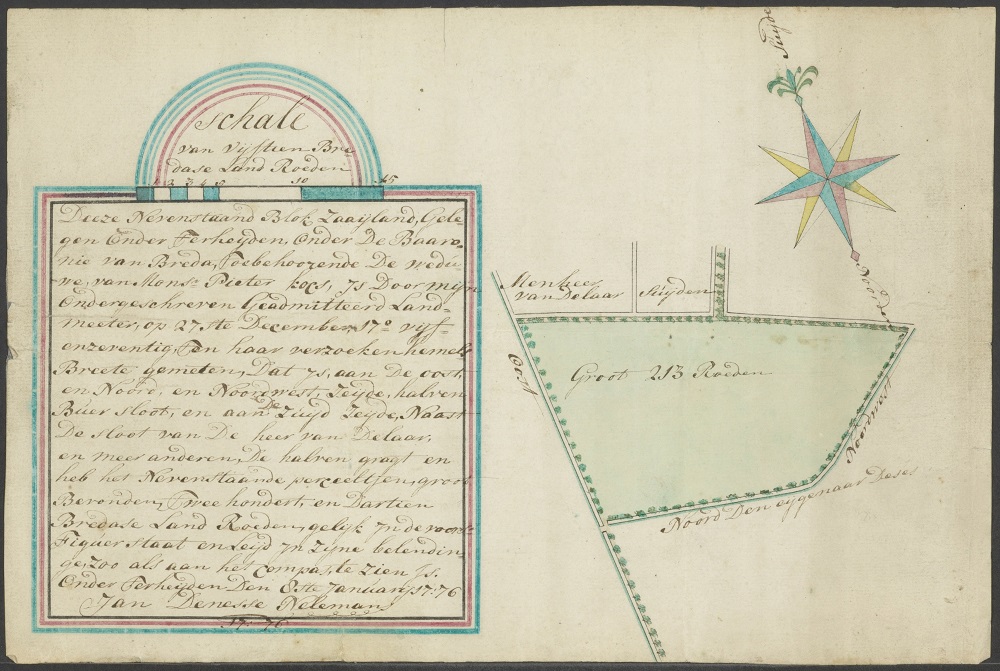 Schale
van vijftien Bre
dase Land Roeden
1 2 3 4 5 10 15
Deeze Nevenstaand Blok Zaaijland, Gele-
gen Onder Terheijden, Onder De Baaro-
nie van Breda, Toebehoorende De wedu-
we, van Monsr Pieter kocs, js Door mijn
Ondergeschreven Geadmitteerd Land-
meeter, op 27ste December, 17c vijf
enzeventig, Ten haar verzoeken hemels
Breete gemeten, Dat js, aan De oost,
en Noord, en Noordwest, Zeijde, halven
Buer sloot, en aan De Zuijd Zeijde, Naast
De sloot van De heer van Delaar,
en meer anderen, De halven gragt en
heb het Nevenstaande perceeltjen, groot
Bevonden, Twee hondert, en Dartien
Bredase Land Roeden, gelijk jn de voors
Figuer staat en Leijd jn Zijne belendin-
ge, zoo als aan het compas te zien js.
Onder Terheijden Den 8ste Januarij 17:76
Jan Denesse Nelemans
17:76
Suijde
Noord
Menheer
van Delaar
Suijden
Oost
Groot 213 Roeden
Noordwest
Noord Den eijgenaar Deses